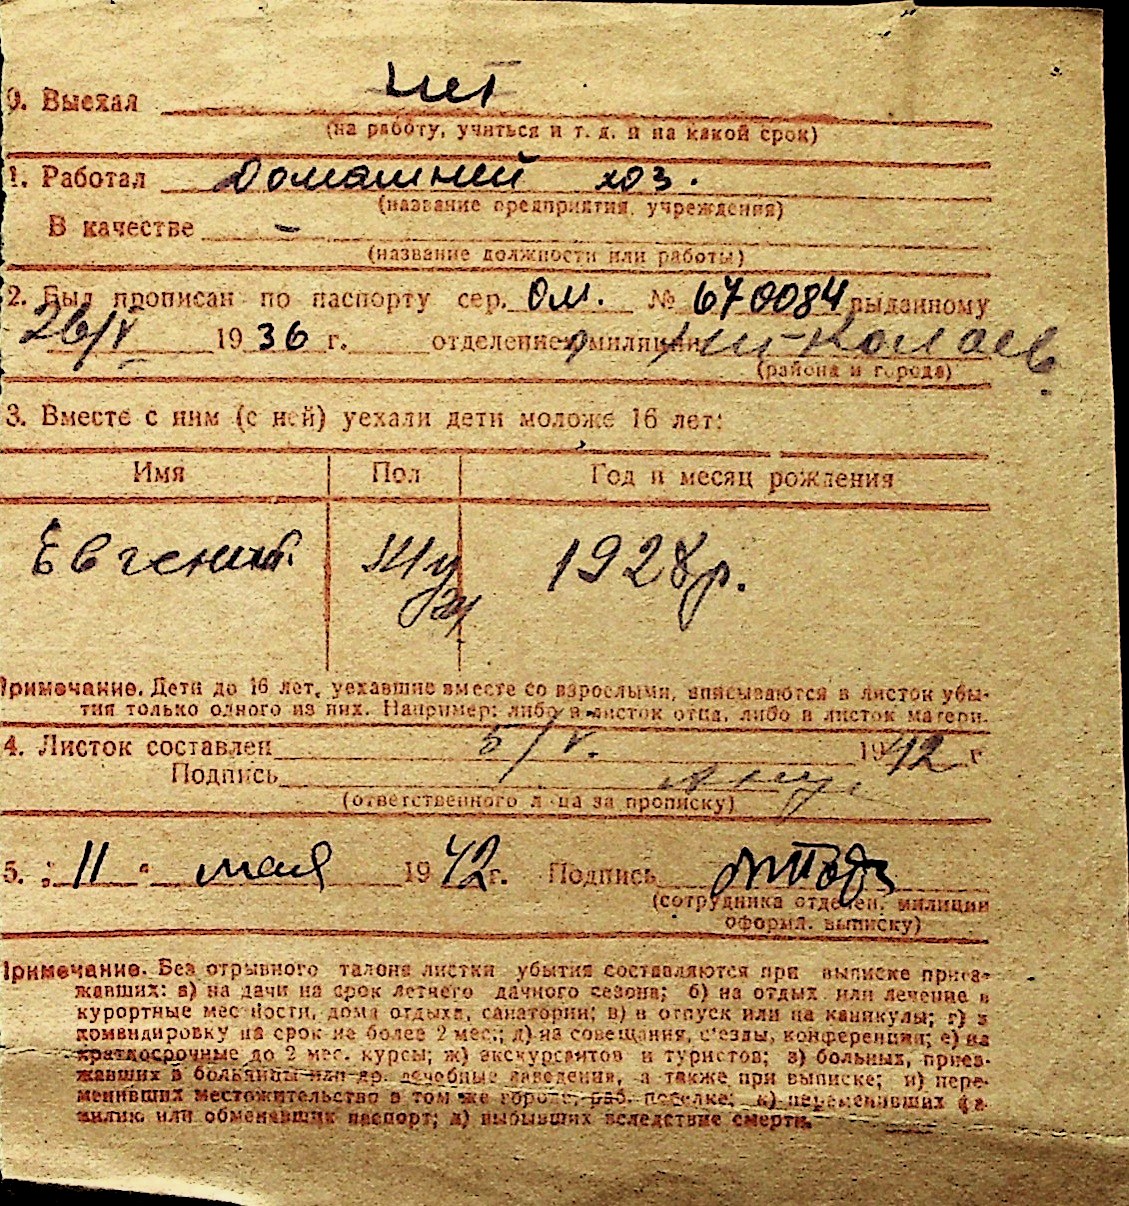 0. Выехал нет
(на работу, учиться и т. д. и на какой срок)
1. Работал Домашней хоз.
(название предприятия, учреждения)
В качестве -
(название должности или работы)
2. Был прописан по паспорту сер. ОМ. № 670084 выданному
26/V 1936 г. отделением милиции Николаев.
(района и города)
3. Вместе с ним (с ней) уехали дети моложе 16 лет:
Имя Пол Год и месяц рождения
Евгений Муж 1928 р.
Примечание. Дети до 16 лет, уехавшие вместе со взрослыми, вписываются в листок убы-
тия только одного из них. Например: либо в листок отца, либо в листок матери.
4. Листок составлен 5/V. 1942 г
Подпись
(ответственного лица за прописку)
5. „11“ мая 1942 г. Подпись
(сотрудника отделен. милиции
оформл. выписку)
Примечание. Без отрывного талона листки убытия составляются при выписке приез-
жавших: а) на дачи на срок летнего дачного сезона; б) на отдых или лечение в
курортные местности, дома отдыха, санатории; в) в отпуск или на каникулы; г) в
командировку на срок не более 2 мес.; д) на совещания, с'езды, конференции; е) на
краткосрочные до 2 мес. курсы; ж) экскурсантов и туристов; з) больных, приез-
жавших в больницы или др. лечебные заведения, а также при выписке; и) пере-
менивших местожительство в том же городе, раб. поселке; к) переменивших фа-
милию или обменявших паспорт; л) выбывших вследствие смерти.